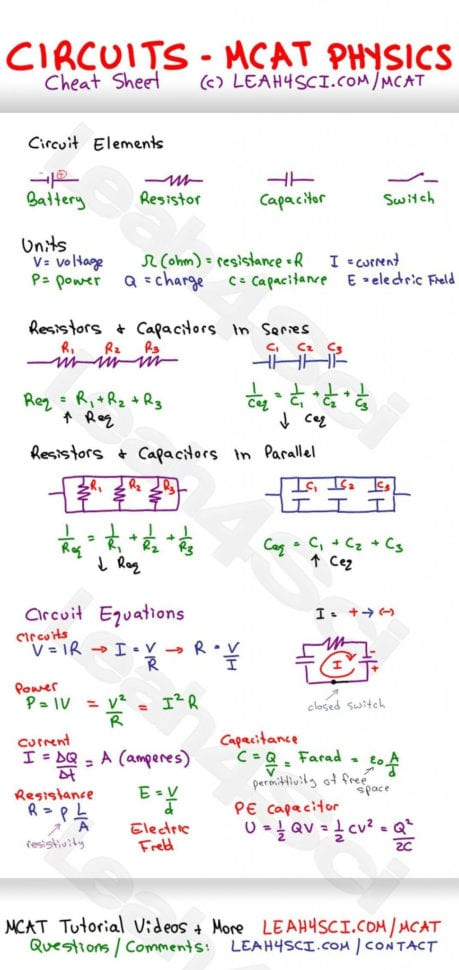 CIRCUITS - MCAT PHYSICS
Cheat Sheet (c) LEAH4SCI.COM/MCAT
Circuit Elements
Battery Resistor Capacitor Switch
Units
V = voltage Ω (ohm) = resistance = R I = current
P = power Q = charge C = Capacitance E = electric Field
Resistors + Capacitors In Series
R1 R2 R3 C1 C2 C3
Req = R1 + R2 + R3 1/Ceq = 1/C1 + 1/C2 + 1/C3
↑ Req ↓ Ceq
Resistors + Capacitors In Parallel
R1 R2 R3 C1 C2 C3
1/Req = 1/R1 + 1/R2 + 1/R3 Ceq = C1 + C2 + C3
↓ Req ↑ Ceq
Circuit Equations I = + → (-)
Circuits
V = IR → I = V/R → R = V/I
I - +
closed switch
Power
P = IV = V²/R = I²R
Current Capacitance
I = ΔQ/Δt = A (amperes) C = Q/V = Farad = ε0 A/d
permittivity of free space
Resistance E = V/d PE Capacitor
R = ρ L/A U = ½ QV = ½ CV² = Q²/2C
resistivity Electric
Field
MCAT Tutorial Videos + More LEAH4SCI.COM/MCAT
Questions / Comments: LEAH4SCI.COM / CONTACT
Leah4Sci
Leah4Sci
Leah4Sci